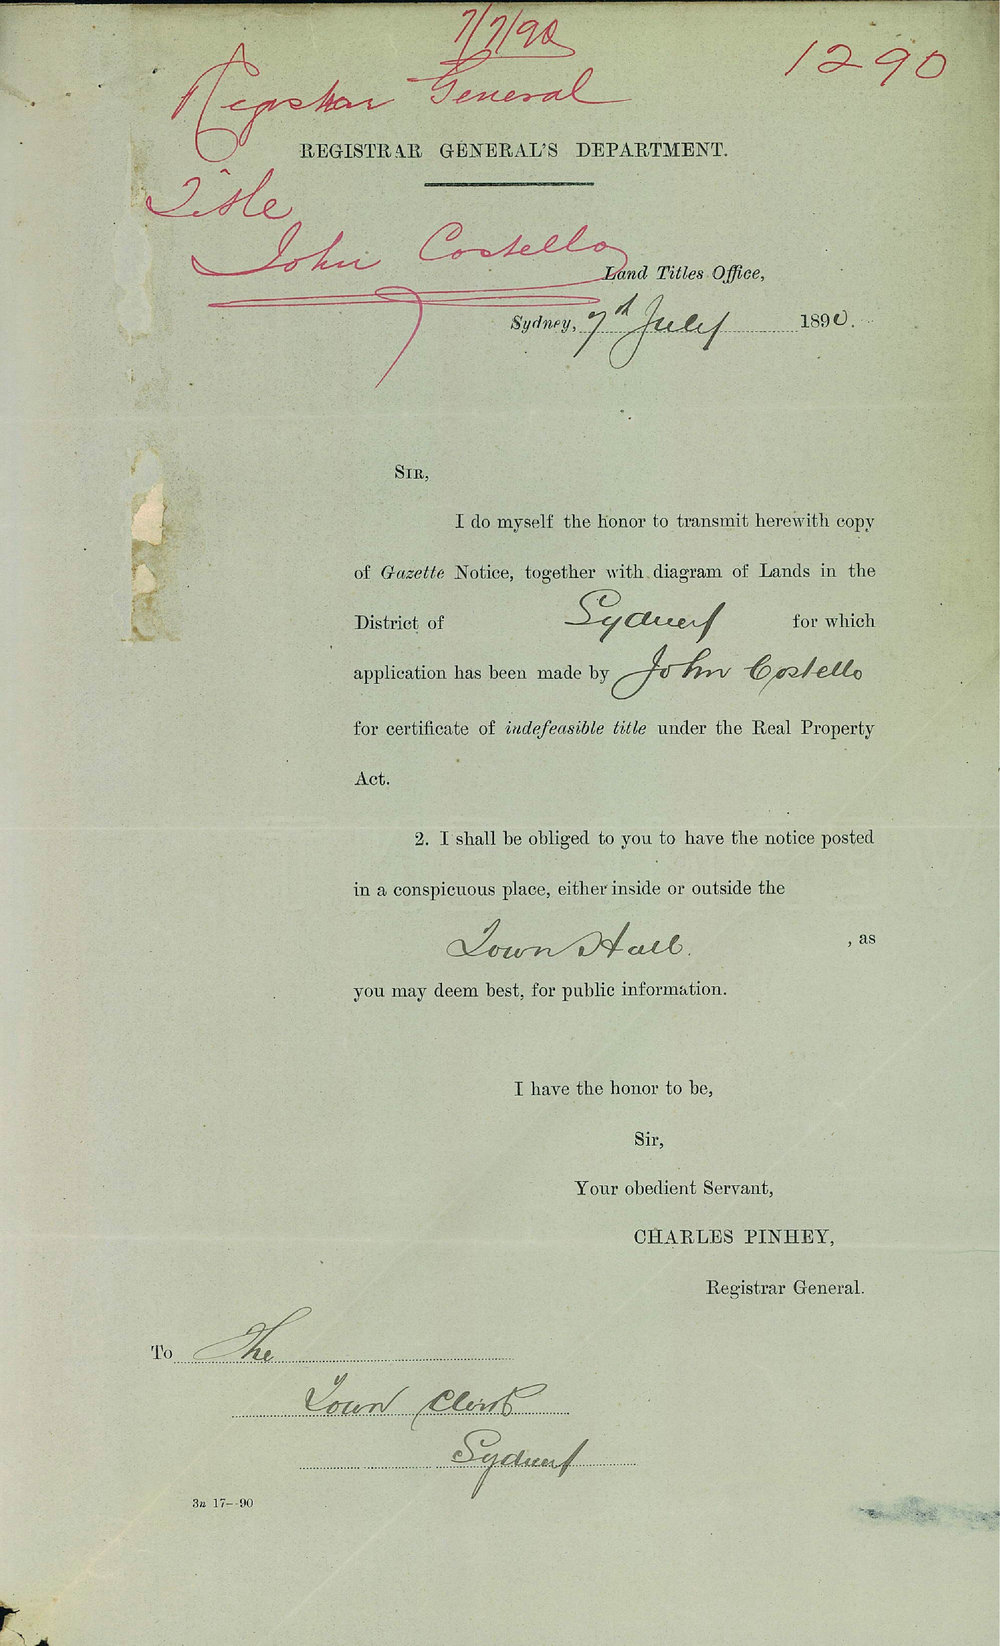 7/7/90
1290
Registrar General
REGISTRAR GENERAL'S DEPARTMENT.
Title
John Costello
Land Titles Office,
Sydney, 7th July 1890.
SIR,
I do myself the honor to transmit herewith copy
of Gazette Notice, together with diagram of Lands in the
District of Sydney for which
application has been made by John Costello
for certificate of indefeasible title under the Real Property
Act.
2. I shall be obliged to you to have the notice posted
in a conspicuous place, either inside or outside the
Town Hall. , as
you may deem best, for public information.
I have the honor to be,
Sir,
Your obedient Servant,
CHARLES PINHEY,
Registrar General.
To The
Town Clerk
Sydney
3n 17--90